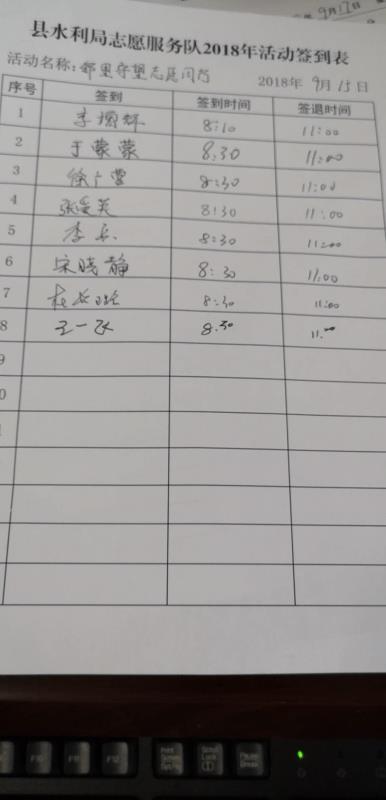 9月17日
县水利局志愿服务队2018年活动签到表
活动名称:邻里守望志愿服务 2018年 9月15日
序号 签到 签到时间 签退时间
1 8:10 11:00
2 于蒙蒙 8:30 11:00
3 徐广营 8:30 11:00
4 张爱英 8:30 11:00
5 李兵 8:30 11:00
6 宋晓静 8:30 11:00
7 8:30 11:00
8 王一飞 8:30 11:00
9
F10 F11 F12 Print Screen SysRq Scroll Lock Pause Break